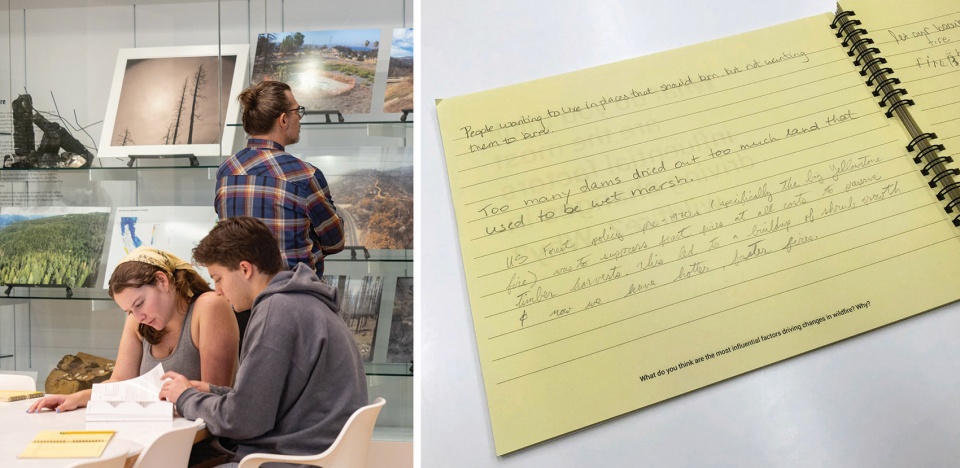 People wanting to live in places that should burn but not wanting
them to burn.
Too many dams dried out too much land that
used to be wet marsh.
US Forest policy pre-1970s (specifically the big Yellowstone
fire) was to suppress forest fires at all costs to
timber harvests. This led to a buildup of shrub growth
& now we have hotter, faster fires.
What do you think are the most influential factors driving changes in wildfire? Why?
let our
fire